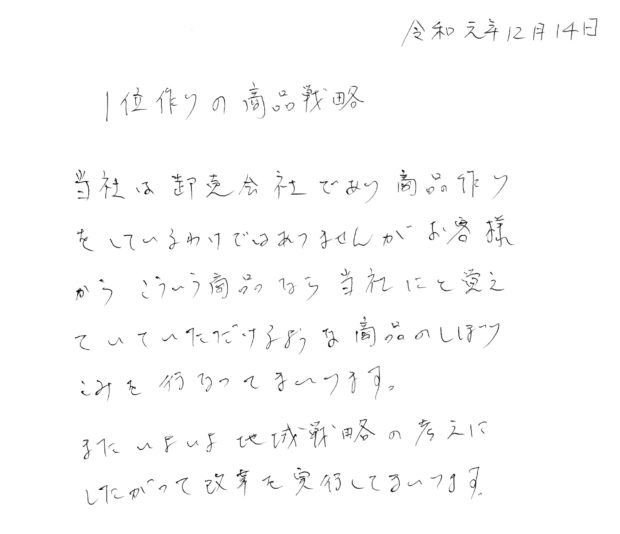 令和元年12月14日
1位作りの商品戦略
当社は卸売会社であり商品作り
をしているわけではありませんがお客様
から こういう商品なら当社にと覚え
ていていただけるような商品のしぼり
こみを行なってまいります。
またいよいよ地域戦略の考えに
したがって改革を実行してまいります。